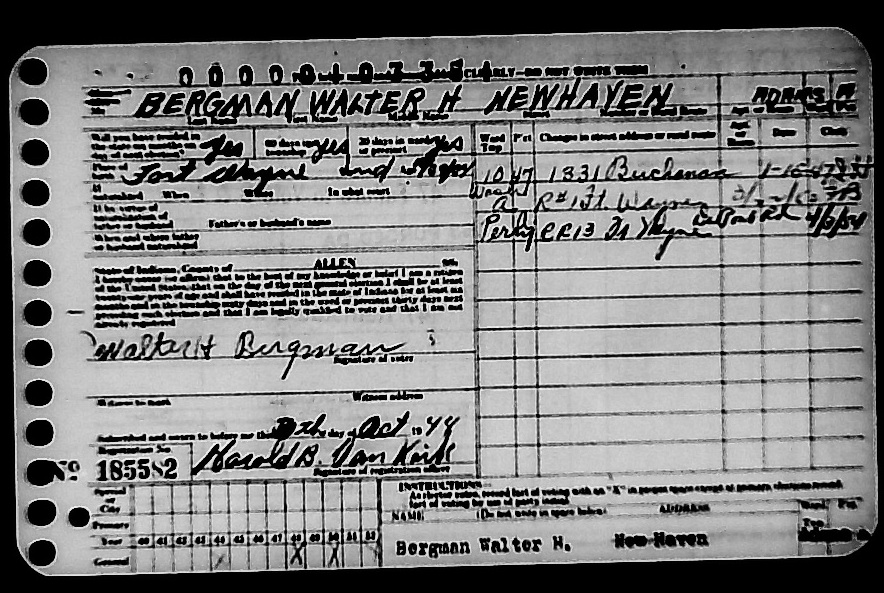 CLEARLY—DO NOT WRITE THESE
BERGMAN WALTER H NEWHAVEN ADAMS
Last Name First Name Middle Name Street Number or Rural Route
Will you have resided in
the state six months on
day of next election? Yes 60 days in township Yes 30 days in ward or precinct Yes
Ward Twp Pct Changes in street address or rural route Date Clerk
Fort Wayne Ind
10 47 1331 Buchanan
When Where In what court
Wash A R#1 Ft Wayne
Father's or husband's name
Perry RR13 Ft Wayne
father or husband
When and where father
or husband naturalized
State of Indiana, County of ALLEN SS.
I hereby swear or affirm that to the best of my knowledge or belief I am a citizen
of the United States, that on the day of the next general election I shall be at least
twenty-one years of age and shall have resided in the state of Indiana for at least six
months and in the township sixty days and in the ward or precinct thirty days next
preceding such election and that I am legally qualified to vote and that I am not
already registered
Walter H Bergman
Signature of voter
Witness to mark Witness address
Subscribed and sworn to before me this 7th day of Oct 1944
Registration No.
No 185582 Harold B. Van Kirk
Signature of registration officer
INSTRUCTIONS
As elector votes, record fact of voting with an "X" in proper space except at primary elections record
fact of voting by use of party initial
Special
City
Primary
Year 40 41 42 43 44 45 46 47 48 49 50 51 52
General X X X
NAME (Do not write in space below) ADDRESS Ward Twp Pct
Bergman Walter H. New Haven